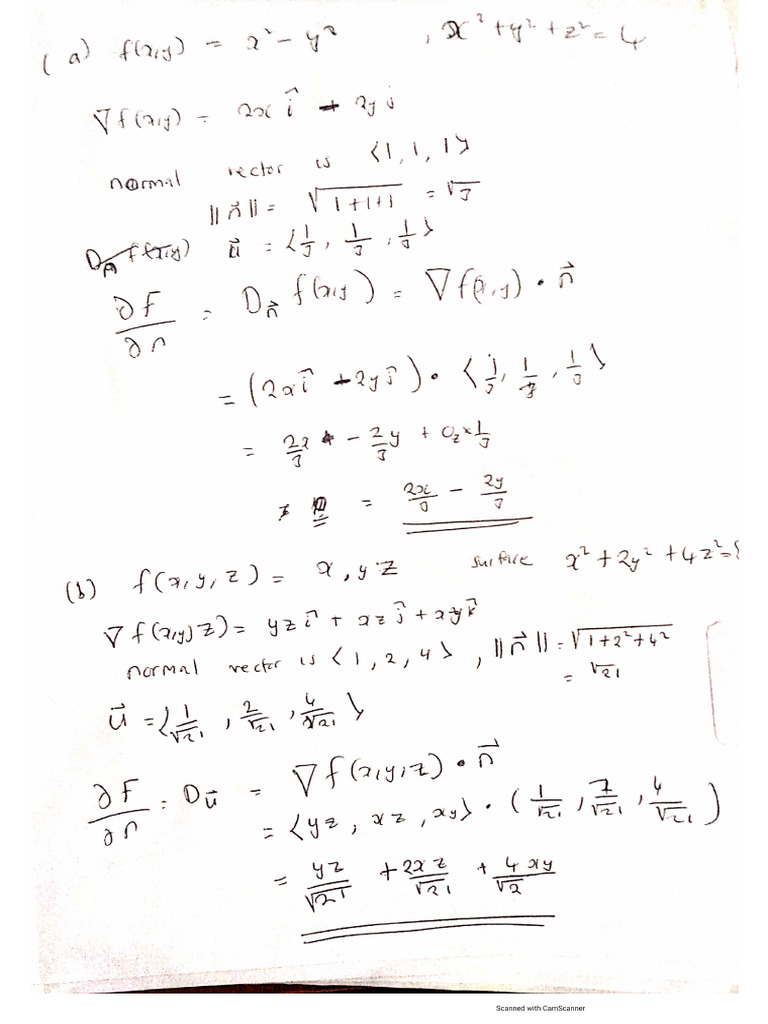 (a) f(x,y) = x² - y² , x² + y² + z² = 4
∇f(x,y) = 2x i⃗ - 2y j
normal vector is ⟨1, 1, 1⟩
||n⃗|| = √(1+1+1) = √3
u⃗ = ⟨1/3, 1/3, 1/3⟩
∂F/∂n = D_n⃗ f(x,y) = ∇f(x,y) · n⃗
= (2x i⃗ - 2y j⃗) · ⟨1/3, 1/3, 1/3⟩
= 2x/3 - 2/3 y + 0z × 1/3
= 2x/3 - 2y/3
(b) f(x,y,z) = x, yz surface x² + 2y² + 4z² = 8
∇f(x,y,z) = yz i⃗ + xz j⃗ + xy k⃗
normal vector is ⟨1, 2, 4⟩, ||n⃗|| = √(1+2²+4²)
= √21
u⃗ = ⟨1/√21, 2/√21, 4/√21⟩
∂F/∂n = D_u⃗ = ∇f(x,y,z) · n⃗
= ⟨yz, xz, xy⟩ · (1/√21, 2/√21, 4/√21)
= yz/√21 + 2xz/√21 + 4xy/√2
Scanned with CamScanner